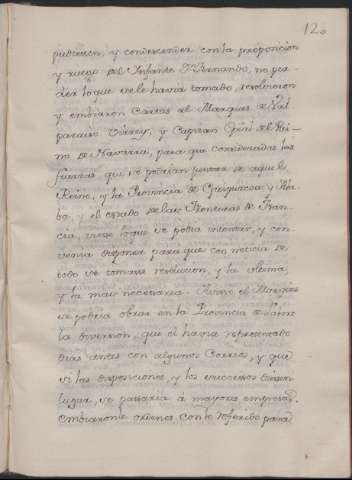 12.
pudiesen, y condescender con la proposicion
y ruego del Infante Dn Fernando, no per-
der lo que se le havia tomado, resolvieron
y embiaron Cartas al Marques de Val
paraiso Virrey, y Capitan Genl del Rei-
no de Navarra, para que consideradas las
fuerzas que se podian juntar de aquel
Reino, y la Provincia de Guipuzcoa y
y el estado de las Fronteras de Fran-
cia, viese lo que se podia intentar, y con-
venia disponer para que con noticia de
todo se tomase resolucion, y la ultima,
y la mas necesaria el Marques
se podria obrar en la Provincia de
la diversion, que él havia representado
dias antes con algunos Correos, y que
si las disposiciones, y los sucesos diesen
lugar, se pasaria á mayores empresas.
Embiaronle ordenes con lo referido para